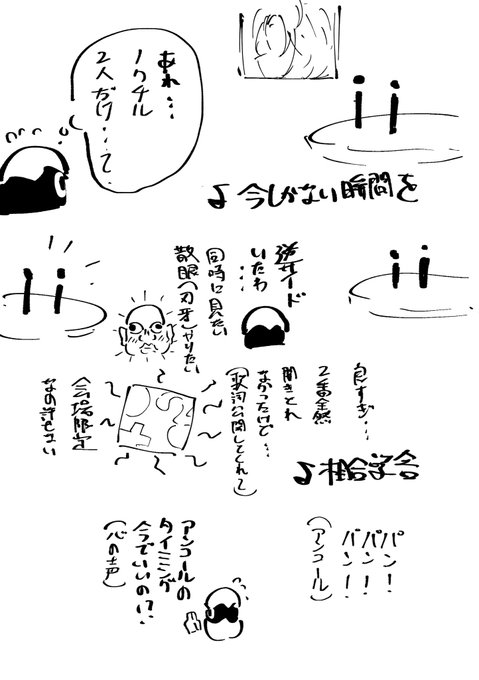 あれ...
ノクチル
2人だけ...って
♪今しかない瞬間を
逆サイド
いたわ...
同時に見たい
散眼(刃牙)やりたい
良すぎ...
2番全然
聞きとれ
なかったけど...
(歌詞公開してくれ〜)
会場限定
なの許せない
♪相合学舎
パン!
パン!
パン!
(アンコール)
アンコールの
タイミング
今でいいの!?
(心の声)